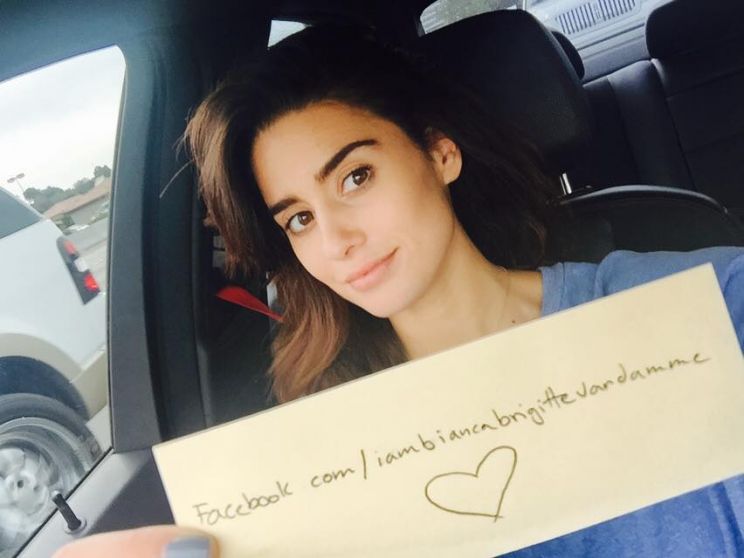 Facebook com/iambiancabrigittevandamme